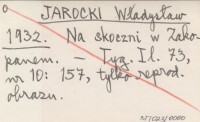 JAROCKI Władysław
1932. Na skoczni w Zako-
panem. — Tyg. Il. 73,
nr 10: 157, tylko reprod.
obrazu.